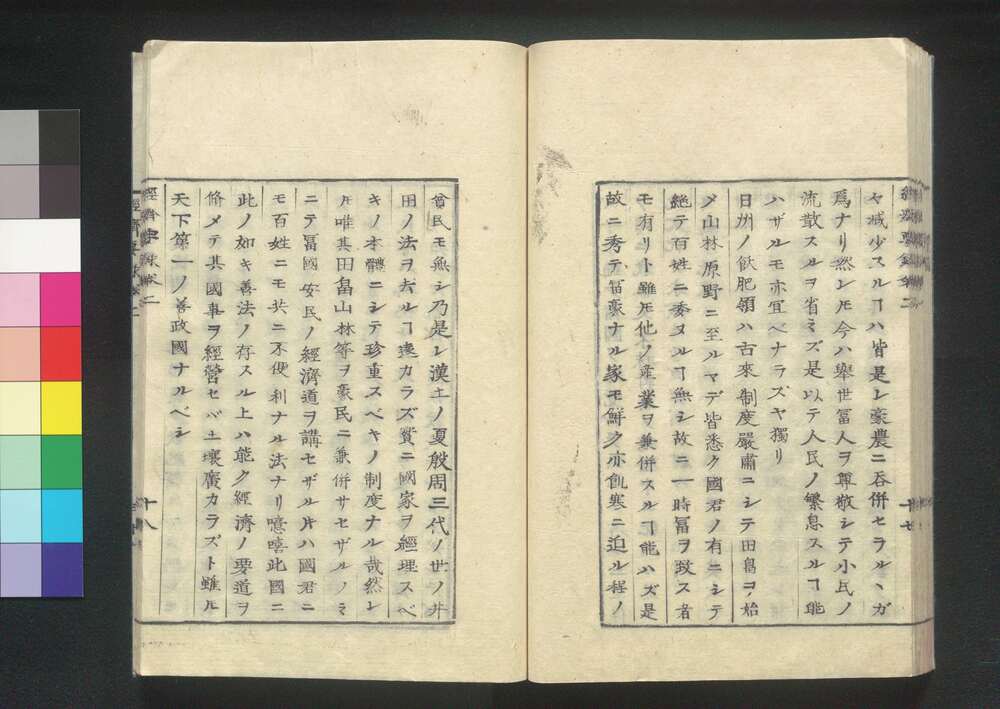 々減少スルヿハ皆是レ豪農ニ呑併セラルヽガ
爲ナリ然レ𪜈今ハ舉世冨人ヲ尊敬シテ小民ノ
流散スルヲ省ミズ是以テ人民ノ繁息スルヿ能
ハザルモ亦宜ベナラズヤ獨リ
日州ノ飫肥領ハ古來制度嚴肅ニシテ田畠ヲ始
メ山林原野ニ至ルマデ皆悉ク國君ノ有ニシテ
絶テ百姓ニ委ヌルヿ無シ故ニ一時冨ヲ致ス者
モ有リト雖𪜈他ノ産業ヲ兼併スルヿ能ハズ是
故ニ秀テ冨豪ナル家モ鮮ク亦飢寒ニ迫ル程ノ
十七
貧民モ無シ乃是レ漢土ノ夏殷周三代ノ世ノ井
田ノ法ヲ去ルヿ遠カラズ實ニ國家ヲ經理スベ
キノ本體ニシテ珍重スベキノ制度ナル哉然レ
𪜈唯其田畠山林等ヲ豪民ニ兼併サセザルノミ
ニテ冨國安民ノ經濟道ヲ講セザル片ハ國君ニ
モ百姓ニモ共ニ不便利ナル法ナリ噫嘻此國ニ
此ノ如キ善法ノ存スル上ハ能ク經濟ノ要道ヲ
脩メテ其國事ヲ經營セバ土壤廣カラズト雖𪜈
天下第一ノ善政國ナルベシ
十八